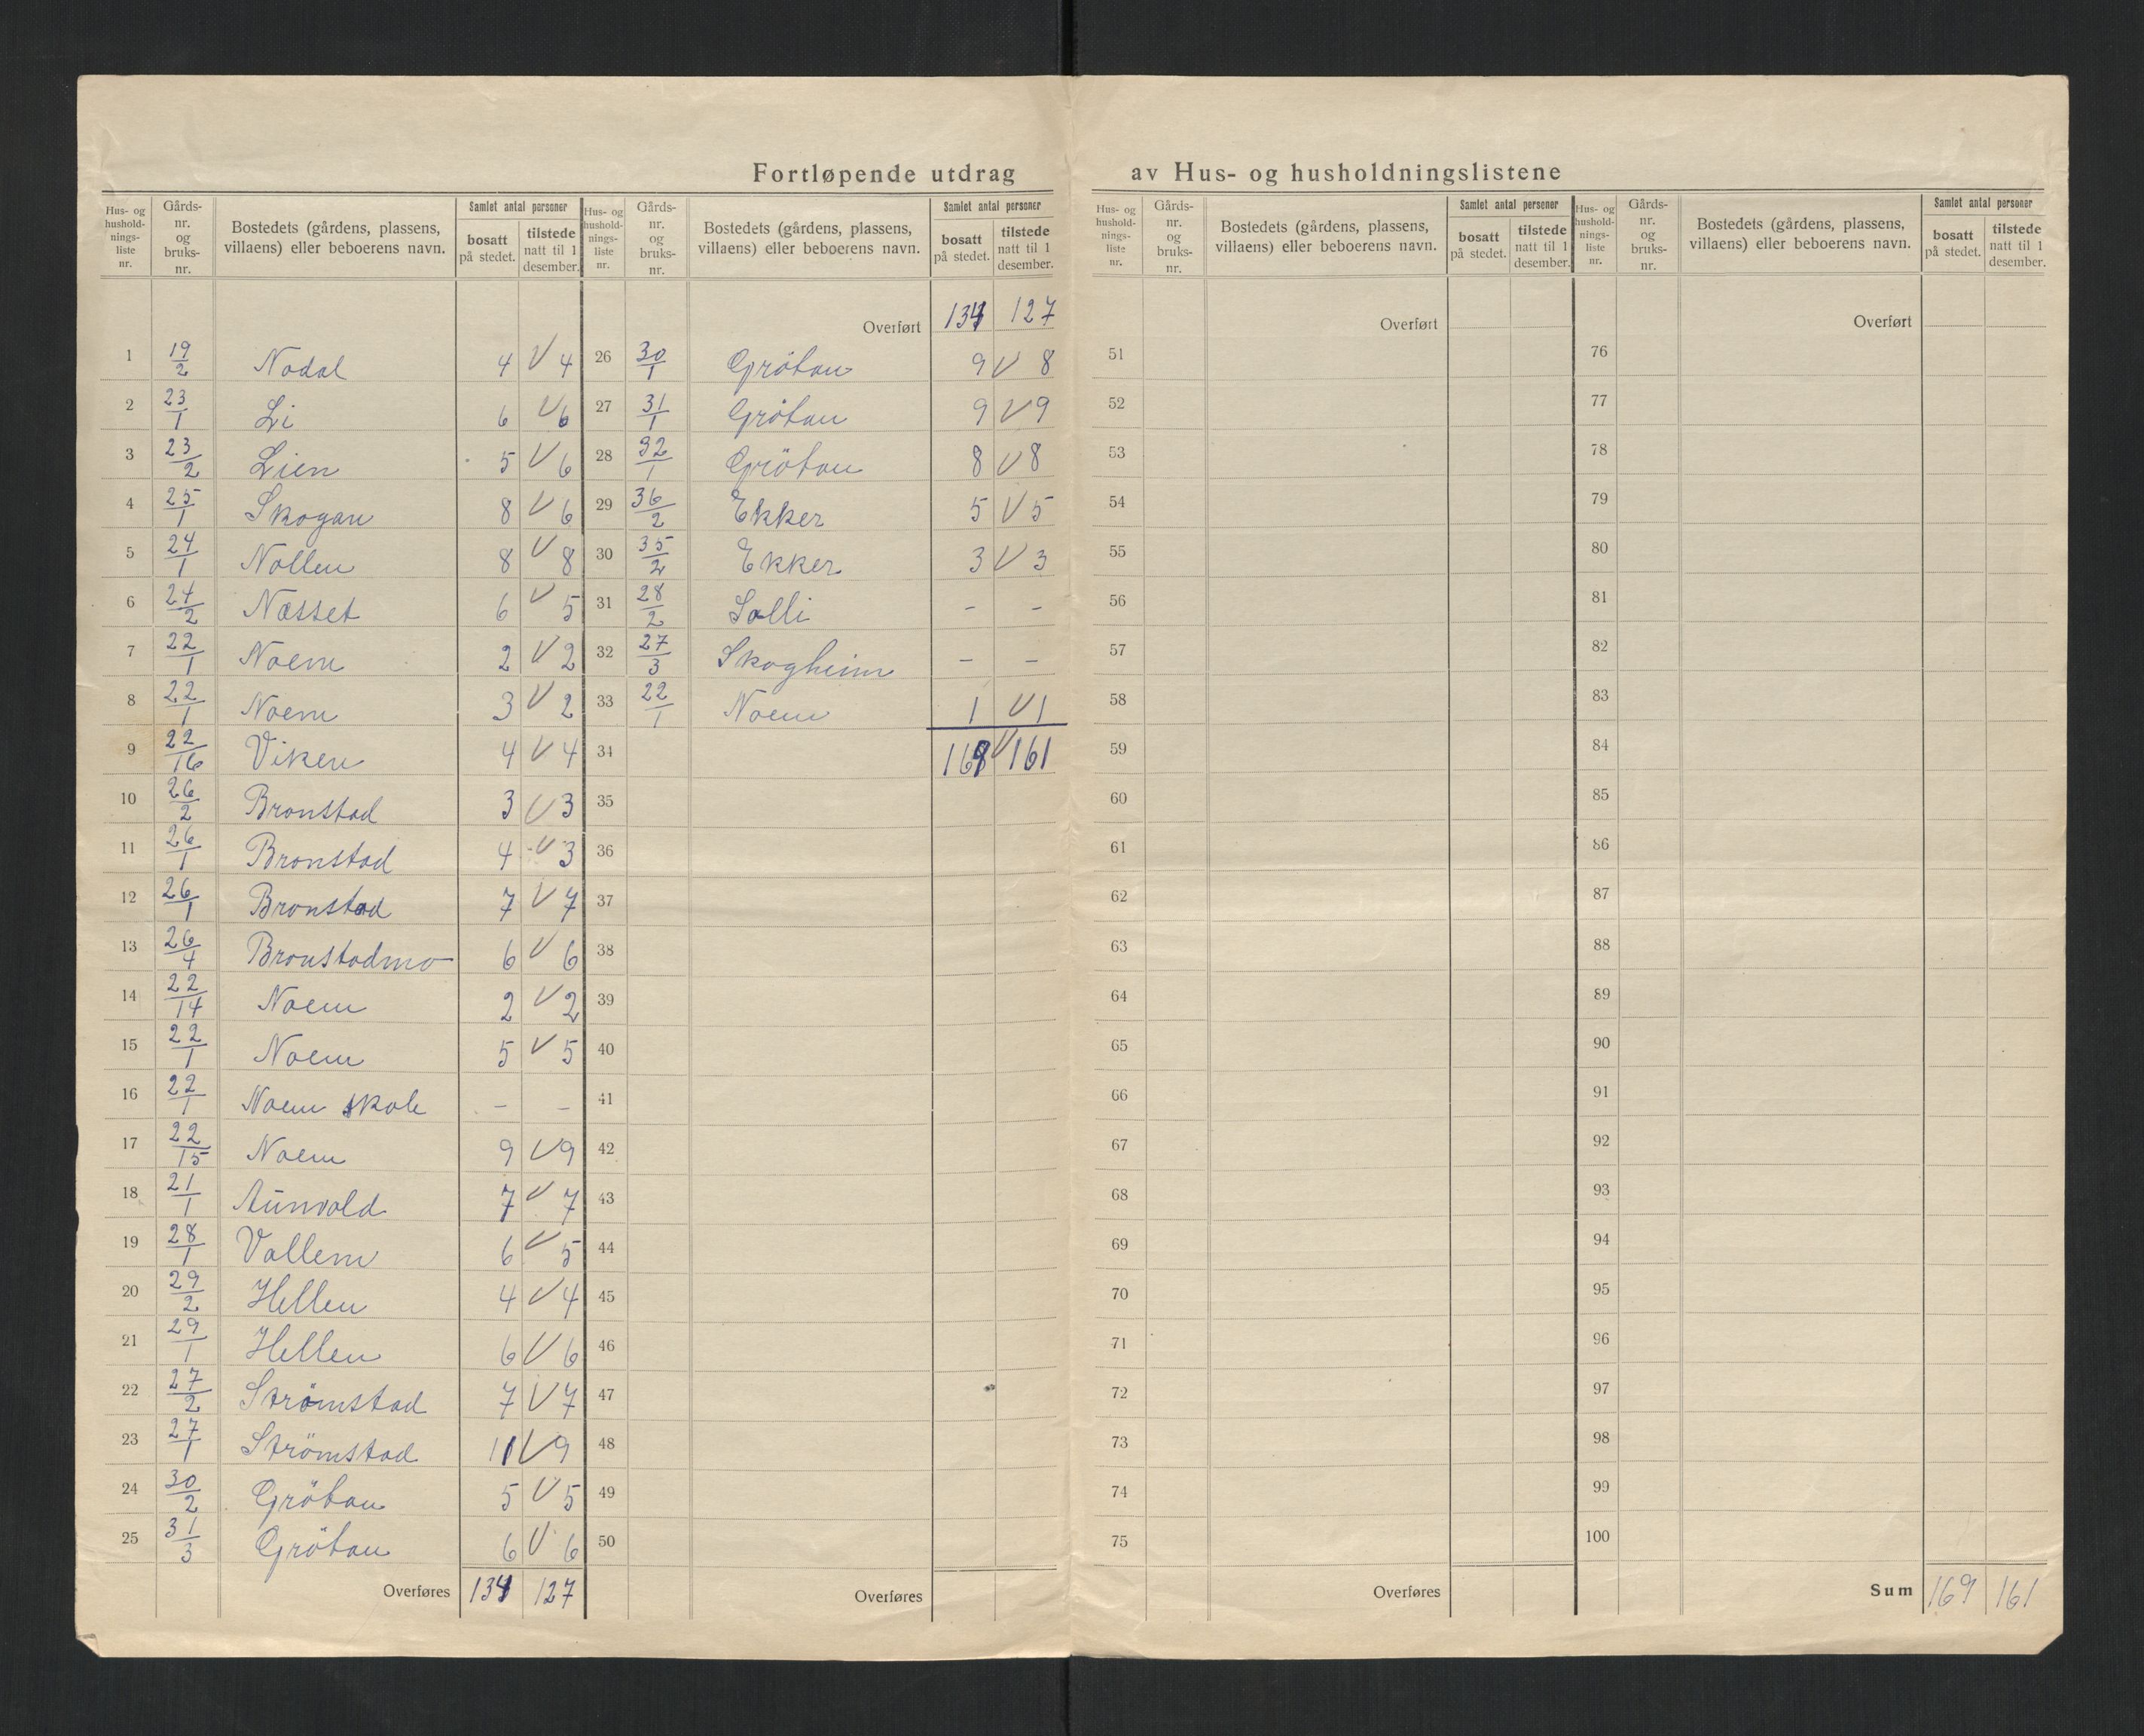 Fortløpende utdrag av Hus- og husholdningslistene
Hus- og hushold-nings-liste nr. | Gårds-nr. og bruks-nr. | Bostedets (gårdens, plassens, villaens) eller beboerens navn. | Samlet antal personer | bosatt på stedet. | tilstede natt til 1 desember.
1 19/2 Nodal 4 V 4
2 23/1 Li 6 V 6
3 23/2 Lien 5 V 6
4 25/1 Skogan 8 V 6
5 24/1 Nollen 8 V 8
6 24/2 Næsset 6 V 5
7 22/1 Noem 2 V 2
8 22/1 Noem 3 V 2
9 22/16 Viken 4 V 4
10 26/2 Bronstad 3 V 3
11 26/1 Bronstad 4 V 3
12 26/1 Bronstad 7 V 7
13 26/4 Bronstadmo 6 V 6
14 22/14 Noem 2 V 2
15 22/1 Noem 5 V 5
16 22/1 Noem skole - -
17 22/15 Noem 9 V 9
18 21/1 Aunvold 7 V 7
19 28/1 Vollem 6 V 5
20 29/2 Hellen 4 V 4
21 29/1 Hellen 6 V 6
22 27/2 Strömstad 7 V 7
23 27/1 Strömstad 11 V 9
24 30/2 Grötan 5 V 5
25 31/3 Grötan 6 V 6
Overføres 134 127
Hus- og hushold-nings-liste nr. | Gårds-nr. og bruks-nr. | Bostedets (gårdens, plassens, villaens) eller beboerens navn. | Samlet antal personer | bosatt på stedet. | tilstede natt til 1 desember.
Overført 134 127
26 30/1 Grötan 9 V 8
27 31/1 Grötan 9 V 9
28 32/1 Grötan 8 V 8
29 36/2 Ekker 5 V 5
30 35/2 Ekker 3 V 3
31 28/2 Solli - -
32 27/3 Skogheim - -
33 22/1 Noem 1 V 1
34 169 V 161
35
36
37
38
39
40
41
42
43
44
45
46
47
48
49
50
Overføres
Hus- og hushold-nings-liste nr. | Gårds-nr. og bruks-nr. | Bostedets (gårdens, plassens, villaens) eller beboerens navn. | Samlet antal personer | bosatt på stedet. | tilstede natt til 1 desember.
Overført
51
52
53
54
55
56
57
58
59
60
61
62
63
64
65
66
67
68
69
70
71
72
73
74
75
Overføres
Hus- og hushold-nings-liste nr. | Gårds-nr. og bruks-nr. | Bostedets (gårdens, plassens, villaens) eller beboerens navn. | Samlet antal personer | bosatt på stedet. | tilstede natt til 1 desember.
Overført
76
77
78
79
80
81
82
83
84
85
86
87
88
89
90
91
92
93
94
95
96
97
98
99
100
Sum 169 161